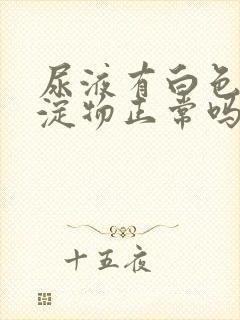 尿液有白色
淀物正常吗
十五夜